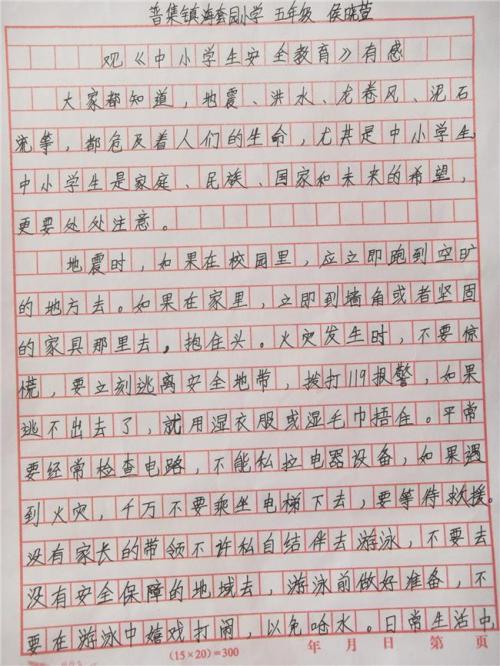 普集镇海套园小学 五年级 侯晓萱
观《中小学生安全教育》有感
大家都知道,地震、洪水、龙卷风、泥石
流等,都危及着人们的生命,尤其是中小学生
中小学生是家庭、民族、国家和未来的希望,
更要处处注意。
地震时,如果在校园里,应立即跑到空旷
的地方去。如果在家里,立即到墙角或者坚固
的家具那里去。抱住头。火灾发生时,不要惊
慌,要立刻逃离安全地带,拨打119报警,如果
逃不出去了,就用湿衣服或湿毛巾捂住。平常
要经常检查电路,不能私拉电器设备,如果遇
到火灾,千万不要乘坐电梯下去,要等待救援。
没有家长的带领不许私自结伴去游泳,不要去
没有安全保障的地域去,游泳前做好准备,不
要在游泳中嬉戏打闹,以免呛水。日常生活中,
(15×20)=300 年 月 日 第 页